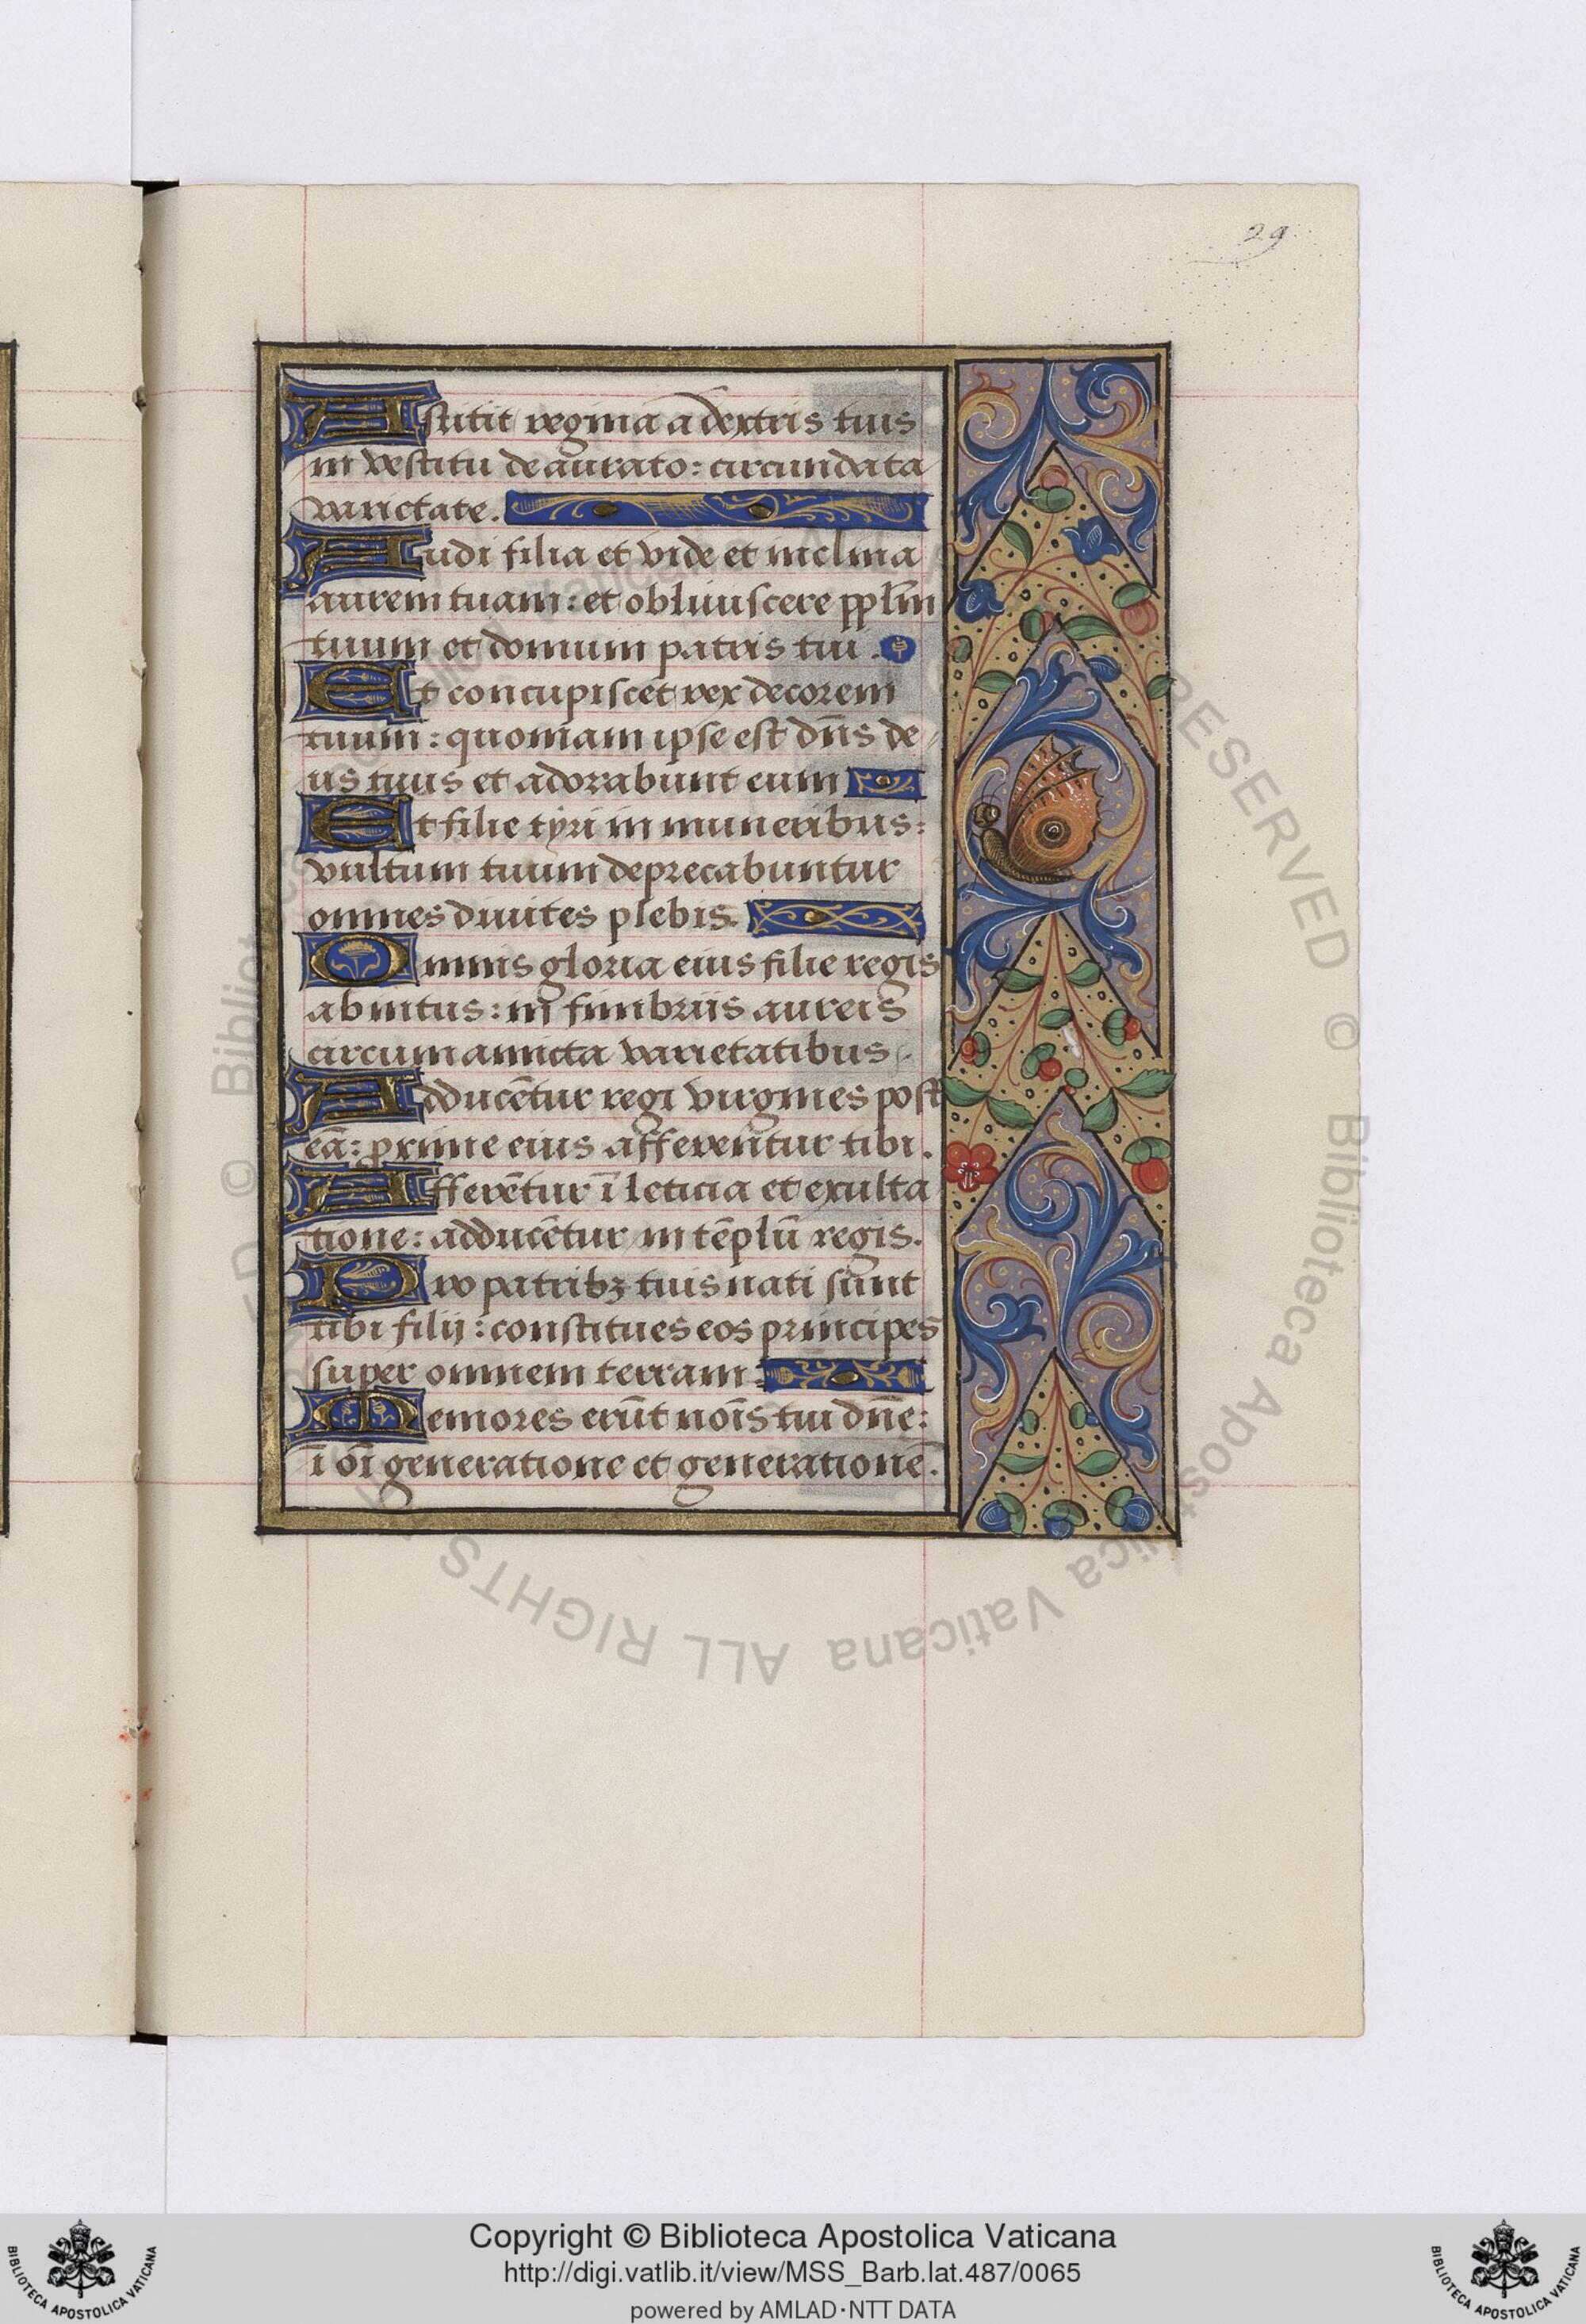 29
Astitit regina a dextris tuis
in vestitu deaurato: circundata
varietate.
Audi filia et vide et inclina
aurem tuam: et obliuiscere pplm̄
tuum et domum patris tui.
Et concupiscet rex decorem
tuum: quoniam ipse est dn̄s de
us tuus et adorabunt eum
Et filie tyri in muneribus:
vultum tuum deprecabuntur
omnes diuites plebis.
Omnis gloria eius filie regis
abintus: in fimbriis aureis
circumamicta varietatibus
Adducētur regi virgines post
eā: proxime eius afferentur tibi.
Afferētur ī leticia et exulta
tione: adducētur in tēplū regis.
Pro patribꝫ tuis nati sunt
tibi filij: constitues eos principes
super omnem terram:
Memores erūt noīs tui dn̄e:
ī oī generatione et generationē.
© Biblioteca Apostolica Vaticana ALL RIGHTS RESERVED
Copyright © Biblioteca Apostolica Vaticana
http://digi.vatlib.it/view/MSS_Barb.lat.487/0065
powered by AMLAD·NTT DATA
BIBLIOTECA APOSTOLICA VATICANA
BIBLIOTECA APOSTOLICA VATICANA